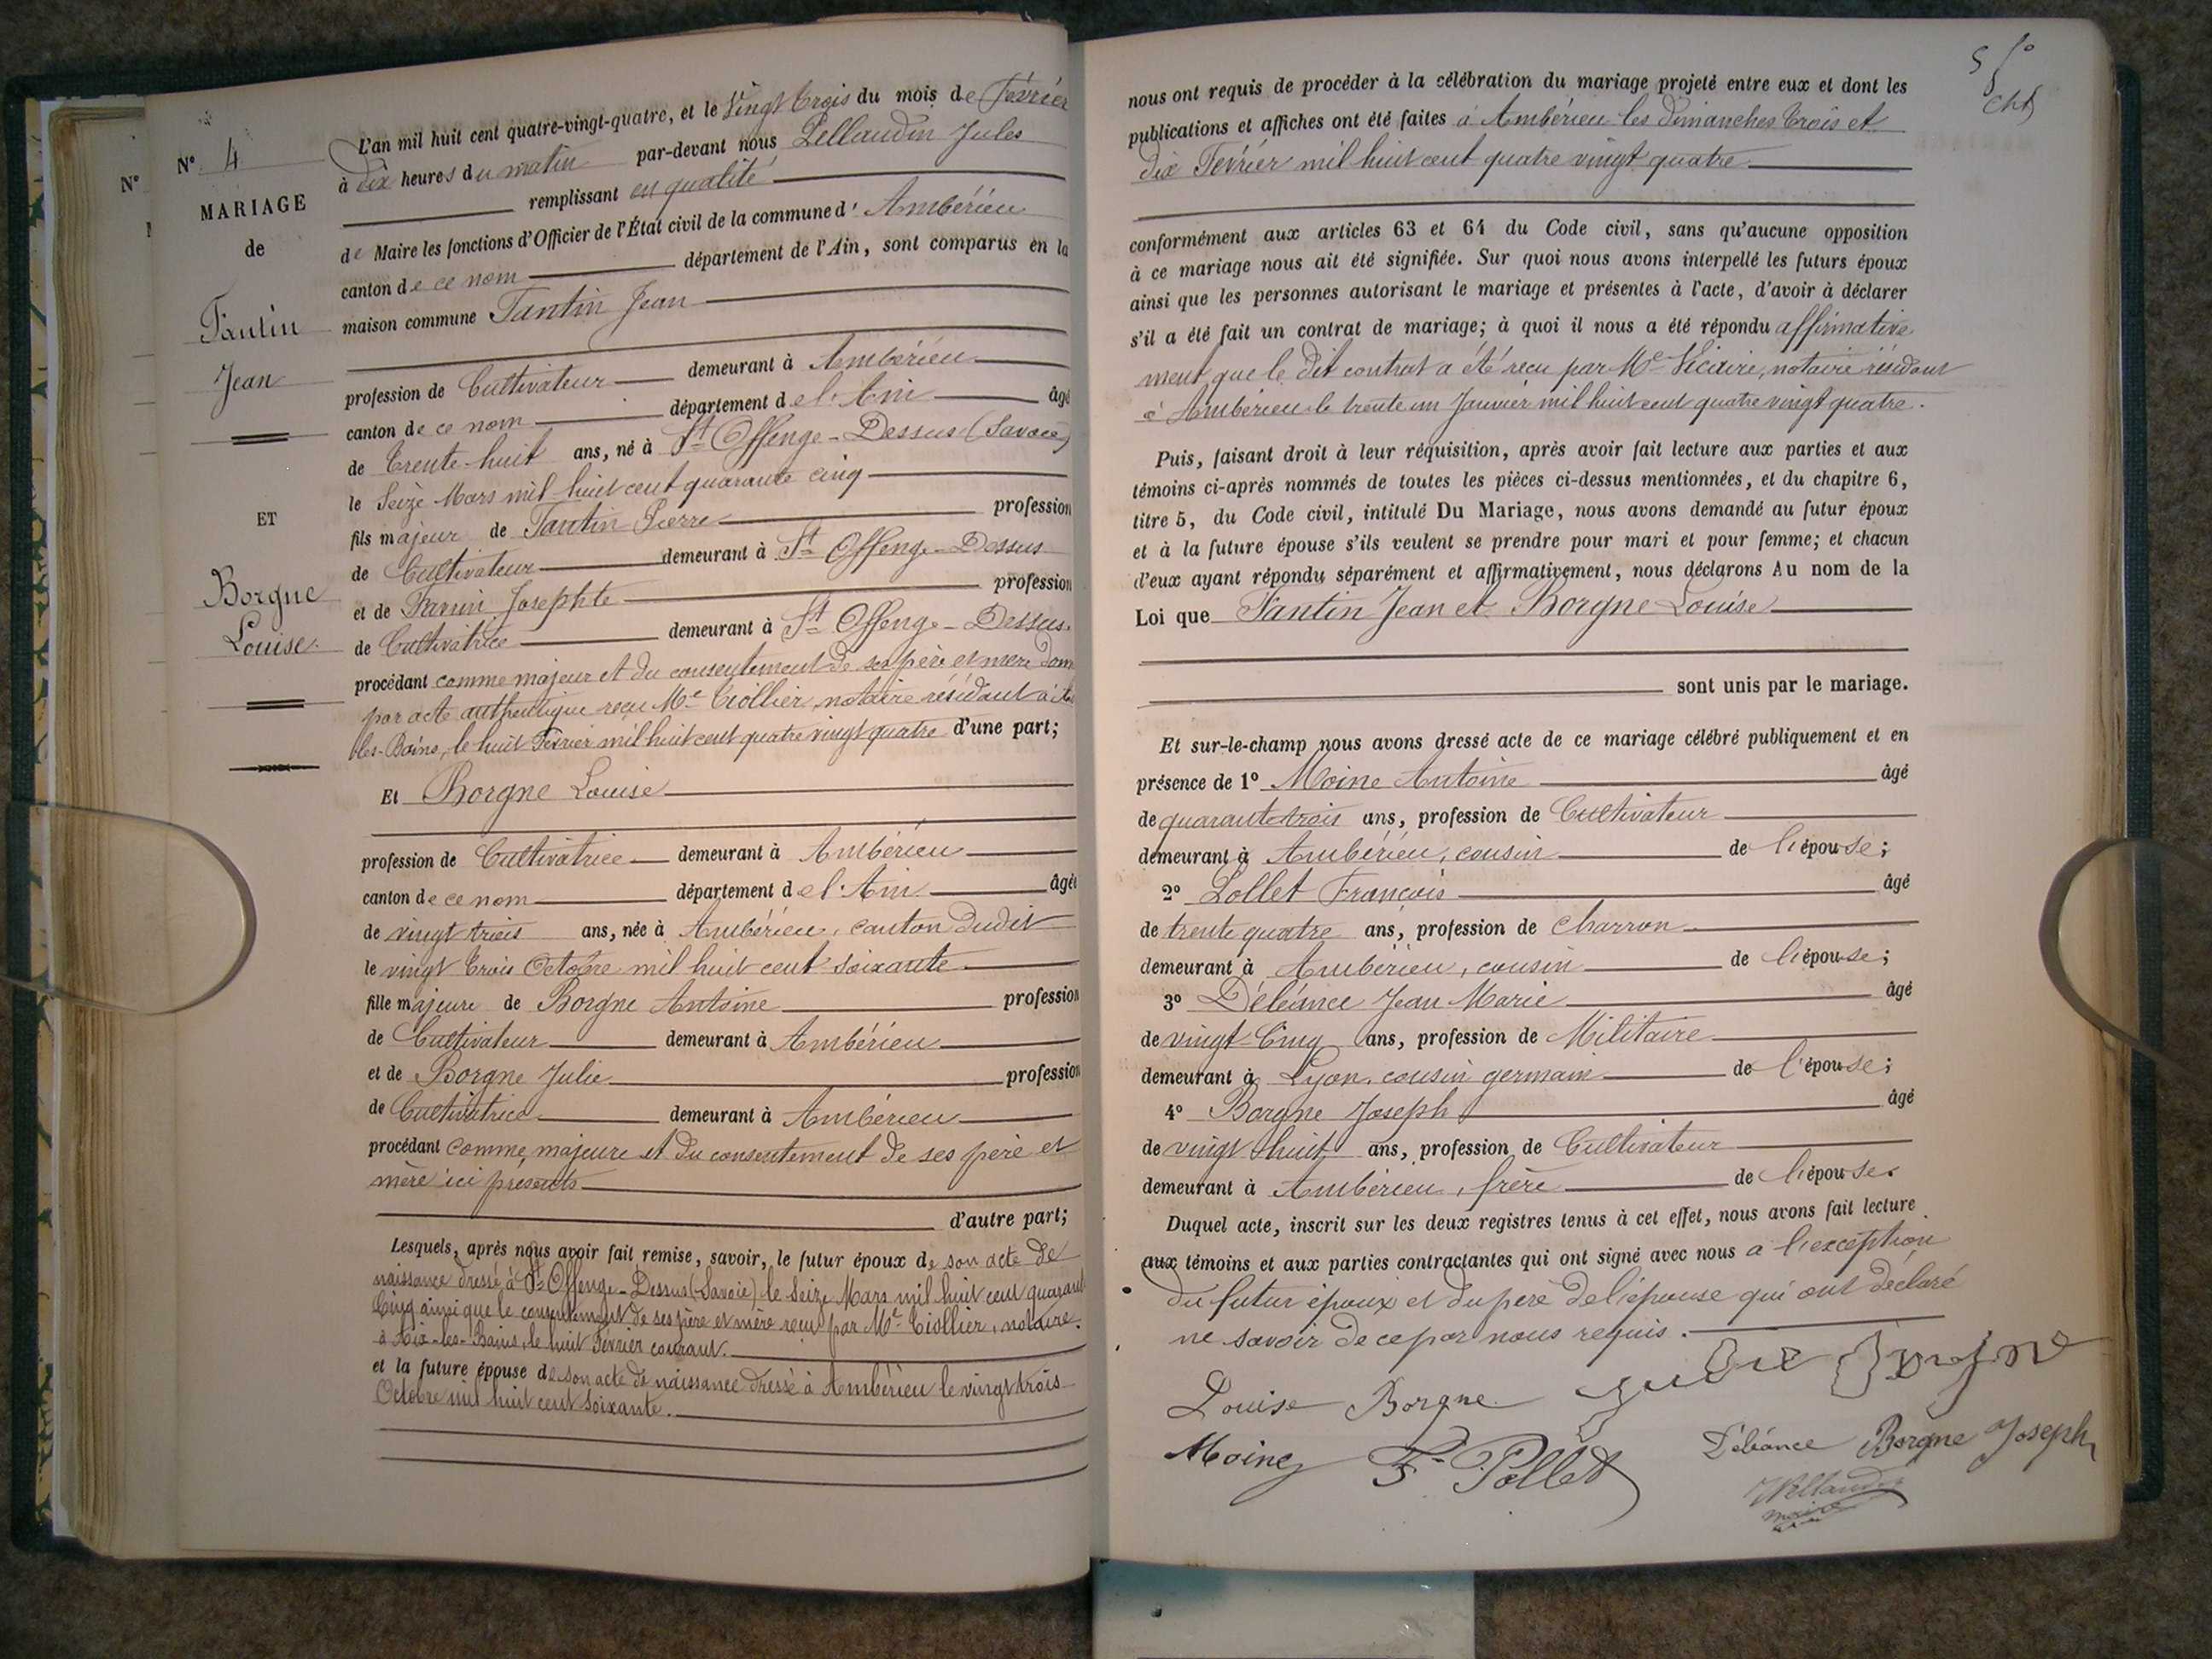 N°
N° 4
MARIAGE
de
Fantin
Jean
ET
Borgne
Louise.
L'an mil huit cent quatre-vingt-quatre, et le Vingt Trois du mois de Février
à dix heures du matin par-devant nous Pellaudin Jules
remplissant en qualité
de Maire les fonctions d'Officier de l'État civil de la commune d' Ambérieu
canton de ce nom département de l'Ain, sont comparus en la
maison commune Fantin Jean
profession de Cultivateur demeurant à Ambérieu
canton de ce nom département de l'Ain âgé
de Trente-huit ans, né à St Offenge-Dessus (Savoie)
le Seize Mars mil huit cent quarante cinq
fils majeur de Fantin Pierre profession
de Cultivateur demeurant à St Offenge-Dessus
et de Josephte profession
de Cultivatrice demeurant à St Offenge-Dessus.
procédant comme majeur et du consentement de ses père et mère
par acte authentique reçu Me Ciollier, notaire résidant à
les-Bains, le huit Février mil huit cent quatre vingt quatre d'une part;
Et Borgne Louise
profession de Cultivatrice demeurant à Ambérieu
canton de ce nom département de l'Ain âgée
de vingt trois ans, née à Ambérieu, canton dudit
le vingt trois Octobre mil huit cent soixante
fille majeure de Borgne Antoine profession
de Cultivateur demeurant à Ambérieu
et de Borgne Julie profession
de Cultivatrice demeurant à Ambérieu
procédant comme majeure et du consentement de ses père et
mère ici présents
d'autre part;
Lesquels, après nous avoir fait remise, savoir, le futur époux de son acte de
naissance dressé à St Offenge-Dessus (Savoie) le Seize Mars mil huit cent quarante
Cinq ainsi que le consentement de ses père et mère reçu par Me Ciollier, notaire
à Aix-les-Bains, le huit Février courant.
et la future épouse de son acte de naissance dressé à Ambérieu le vingt trois
Octobre mil huit cent soixante.
nous ont requis de procéder à la célébration du mariage projeté entre eux et dont les
publications et affiches ont été faites à Ambérieu les dimanches Trois et
dix Février mil huit cent quatre vingt quatre
conformément aux articles 63 et 64 du Code civil, sans qu'aucune opposition
à ce mariage nous ait été signifiée. Sur quoi nous avons interpellé les futurs époux
ainsi que les personnes autorisant le mariage et présentes à l'acte, d'avoir à déclarer
s'il a été fait un contrat de mariage; à quoi il nous a été répondu affirmative
ment, que le dit contrat a été reçu par Me Vicaire, notaire résidant
à Ambérieu le trente un Janvier mil huit cent quatre vingt quatre.
Puis, faisant droit à leur réquisition, après avoir fait lecture aux parties et aux
témoins ci-après nommés de toutes les pièces ci-dessus mentionnées, et du chapitre 6,
titre 5, du Code civil, intitulé Du Mariage, nous avons demandé au futur époux
et à la future épouse s'ils veulent se prendre pour mari et pour femme; et chacun
d'eux ayant répondu séparément et affirmativement, nous déclarons Au nom de la
Loi que Fantin Jean et Borgne Louise
sont unis par le mariage.
Et sur-le-champ nous avons dressé acte de ce mariage célébré publiquement et en
présence de 1° Moine Antoine âgé
de quarante trois ans, profession de Cultivateur
demeurant à Ambérieu, cousin de l'épouse;
2° Pollet François âgé
de trente quatre ans, profession de charron
demeurant à Ambérieu, cousin de l'épouse;
3° Déléance Jean Marie âgé
de vingt-Cinq ans, profession de Militaire
demeurant à Lyon, cousin germain de l'épouse;
4° Borgne Joseph âgé
de vingt huit ans, profession de Cultivateur
demeurant à Ambérieu, frère de l'épouse.
Duquel acte, inscrit sur les deux registres tenus à cet effet, nous avons fait lecture
aux témoins et aux parties contractantes qui ont signé avec nous à l'exception
du futur époux et du père de l'épouse qui ont déclaré
ne savoir de ce par nous requis.
Louise Borgne Borgne
Moine F. Pollet Déléance Borgne Joseph
Pellaudin
maire